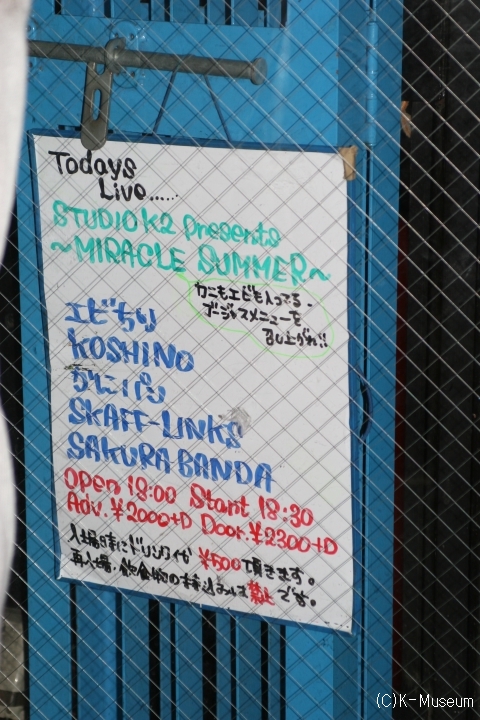 Todays
Live......
STUDIO K2 presents
~MIRACLE SUMMER~
カニもエビも入ってる。
ゴージャスメニューを
召し上がれ!!
エビちり
KOSHINO
かにパン
SKAFF-LINKS
SAKURA BANDA
Open 18:00 Start 18:30
Adv. ¥2000+D Door. ¥2300+D
入場時にドリンク代 ¥500 頂きます。
再入場・飲食物の持込みは禁止です。
(C)K-Museum